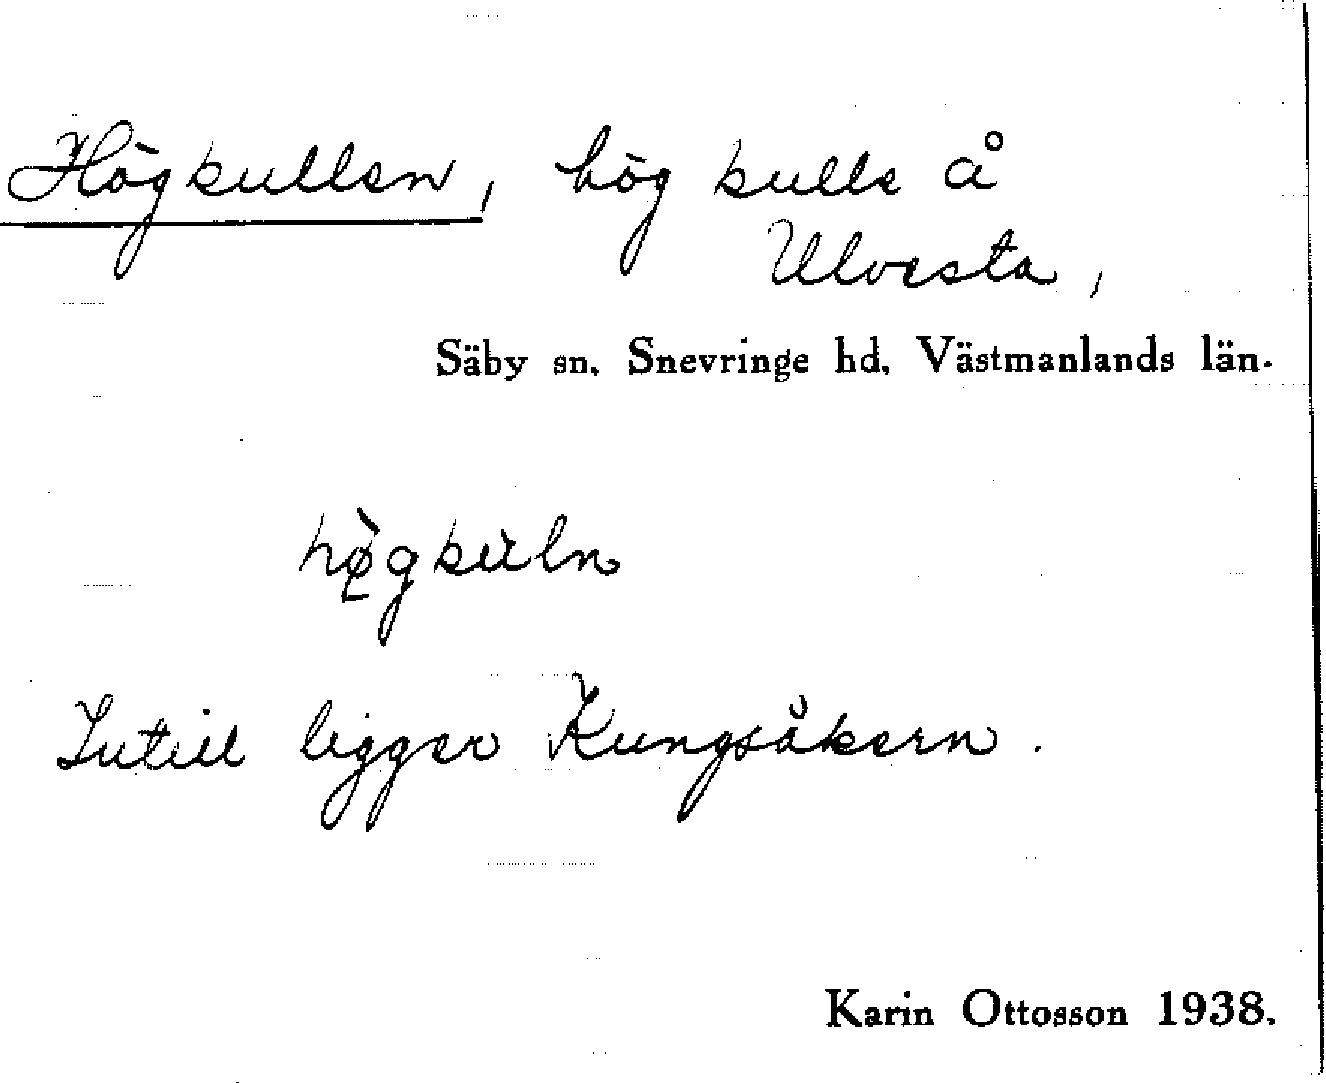 Högkullen, hög kulle å
Ulvesta,
Säby sn. Snevringe hd. Västmanlands län.
hø̀gkùln
Intill ligger Kungsåkern.
Karin Ottosson 1938.